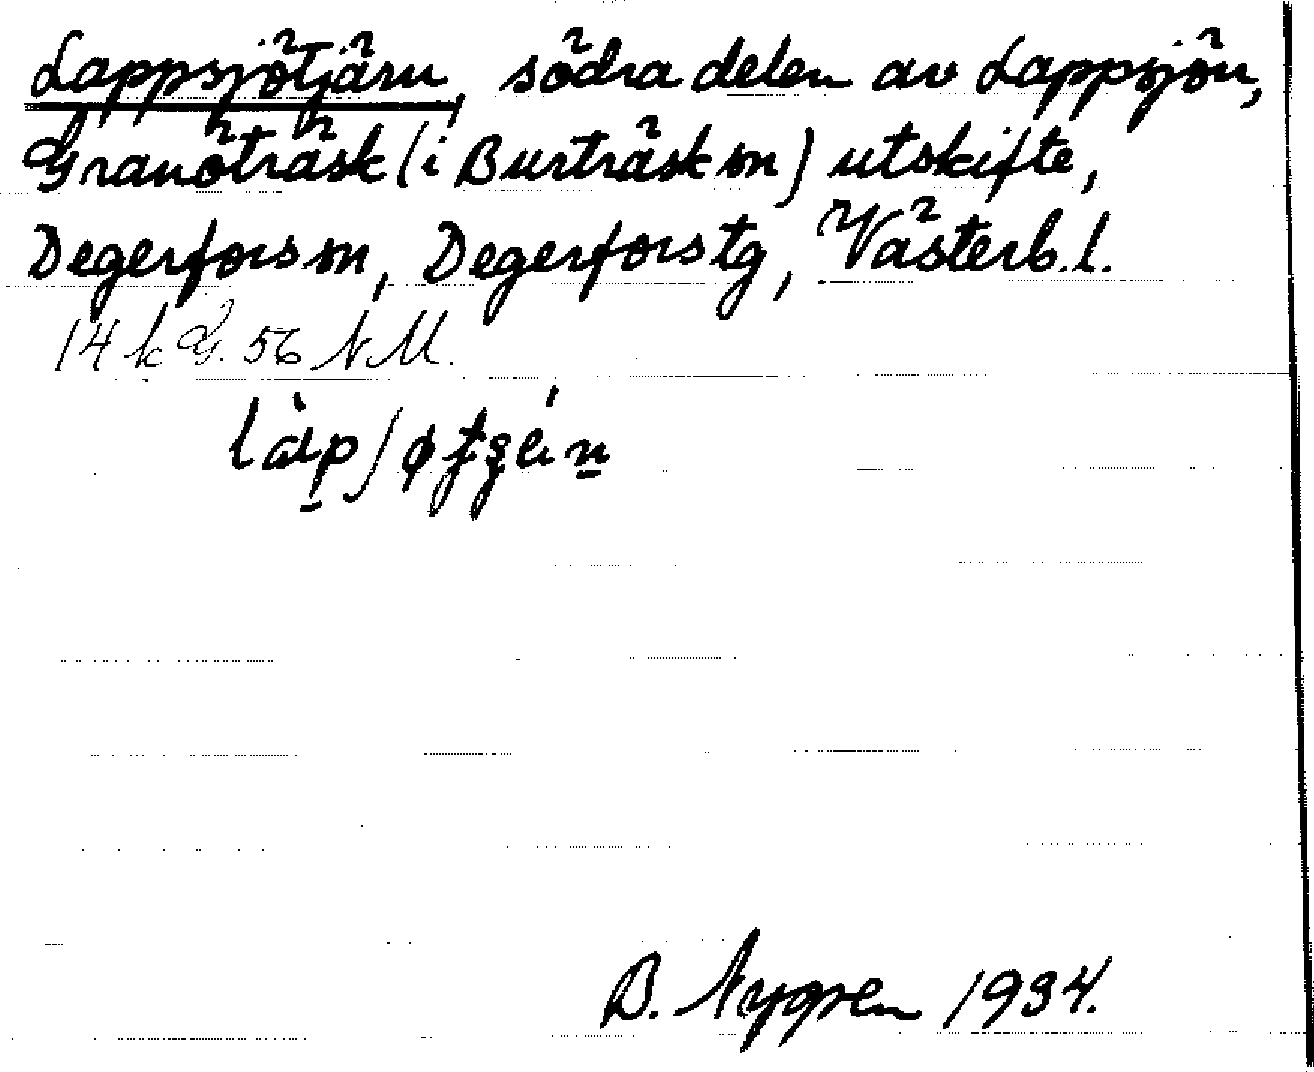 Lappsjötjärn, södra delen av Lappsjön,
Granöträsk (i Burträsk sn) utskifte,
Degerfors sn, Degerfors tg, Västerb. l.
14 k G. 56 N M.
B. Nygren 1934.